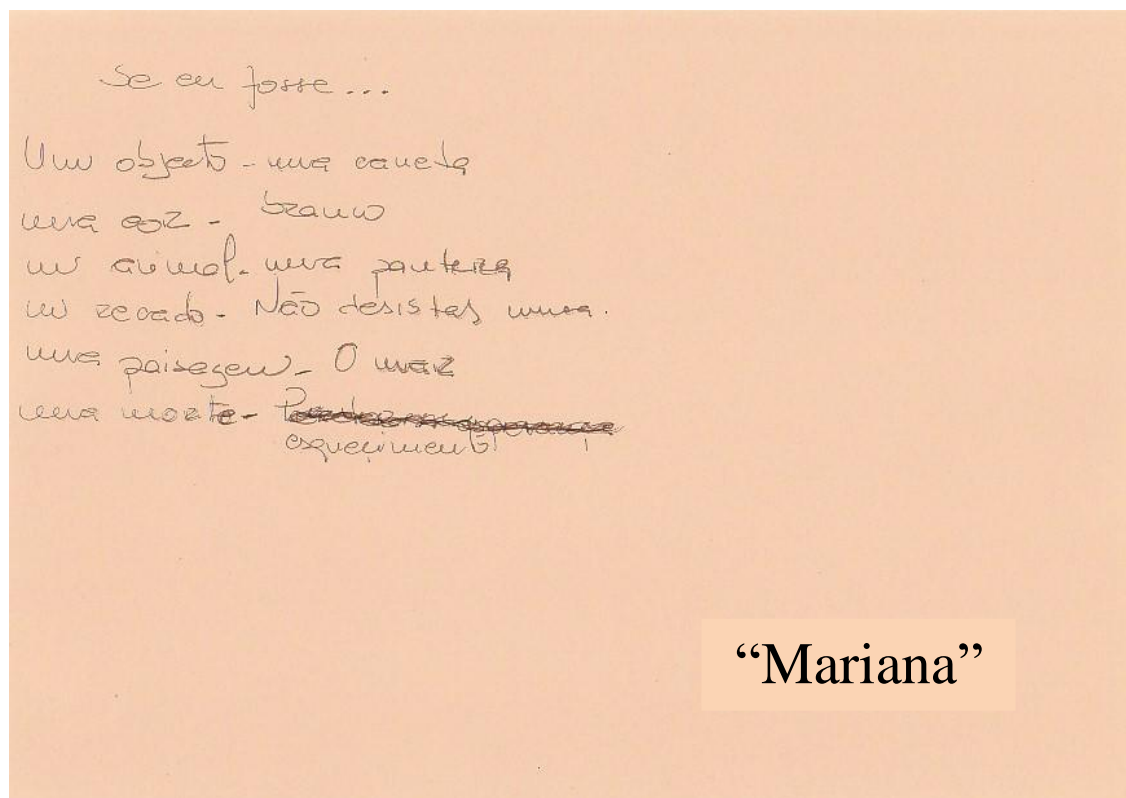 Se eu fosse...
Um objecto - uma caneta
uma cor - branco
um animal - uma pantera
um recado - Não desistas nunca.
uma paisagem - O mar
uma morte -
esquecimento
“Mariana”